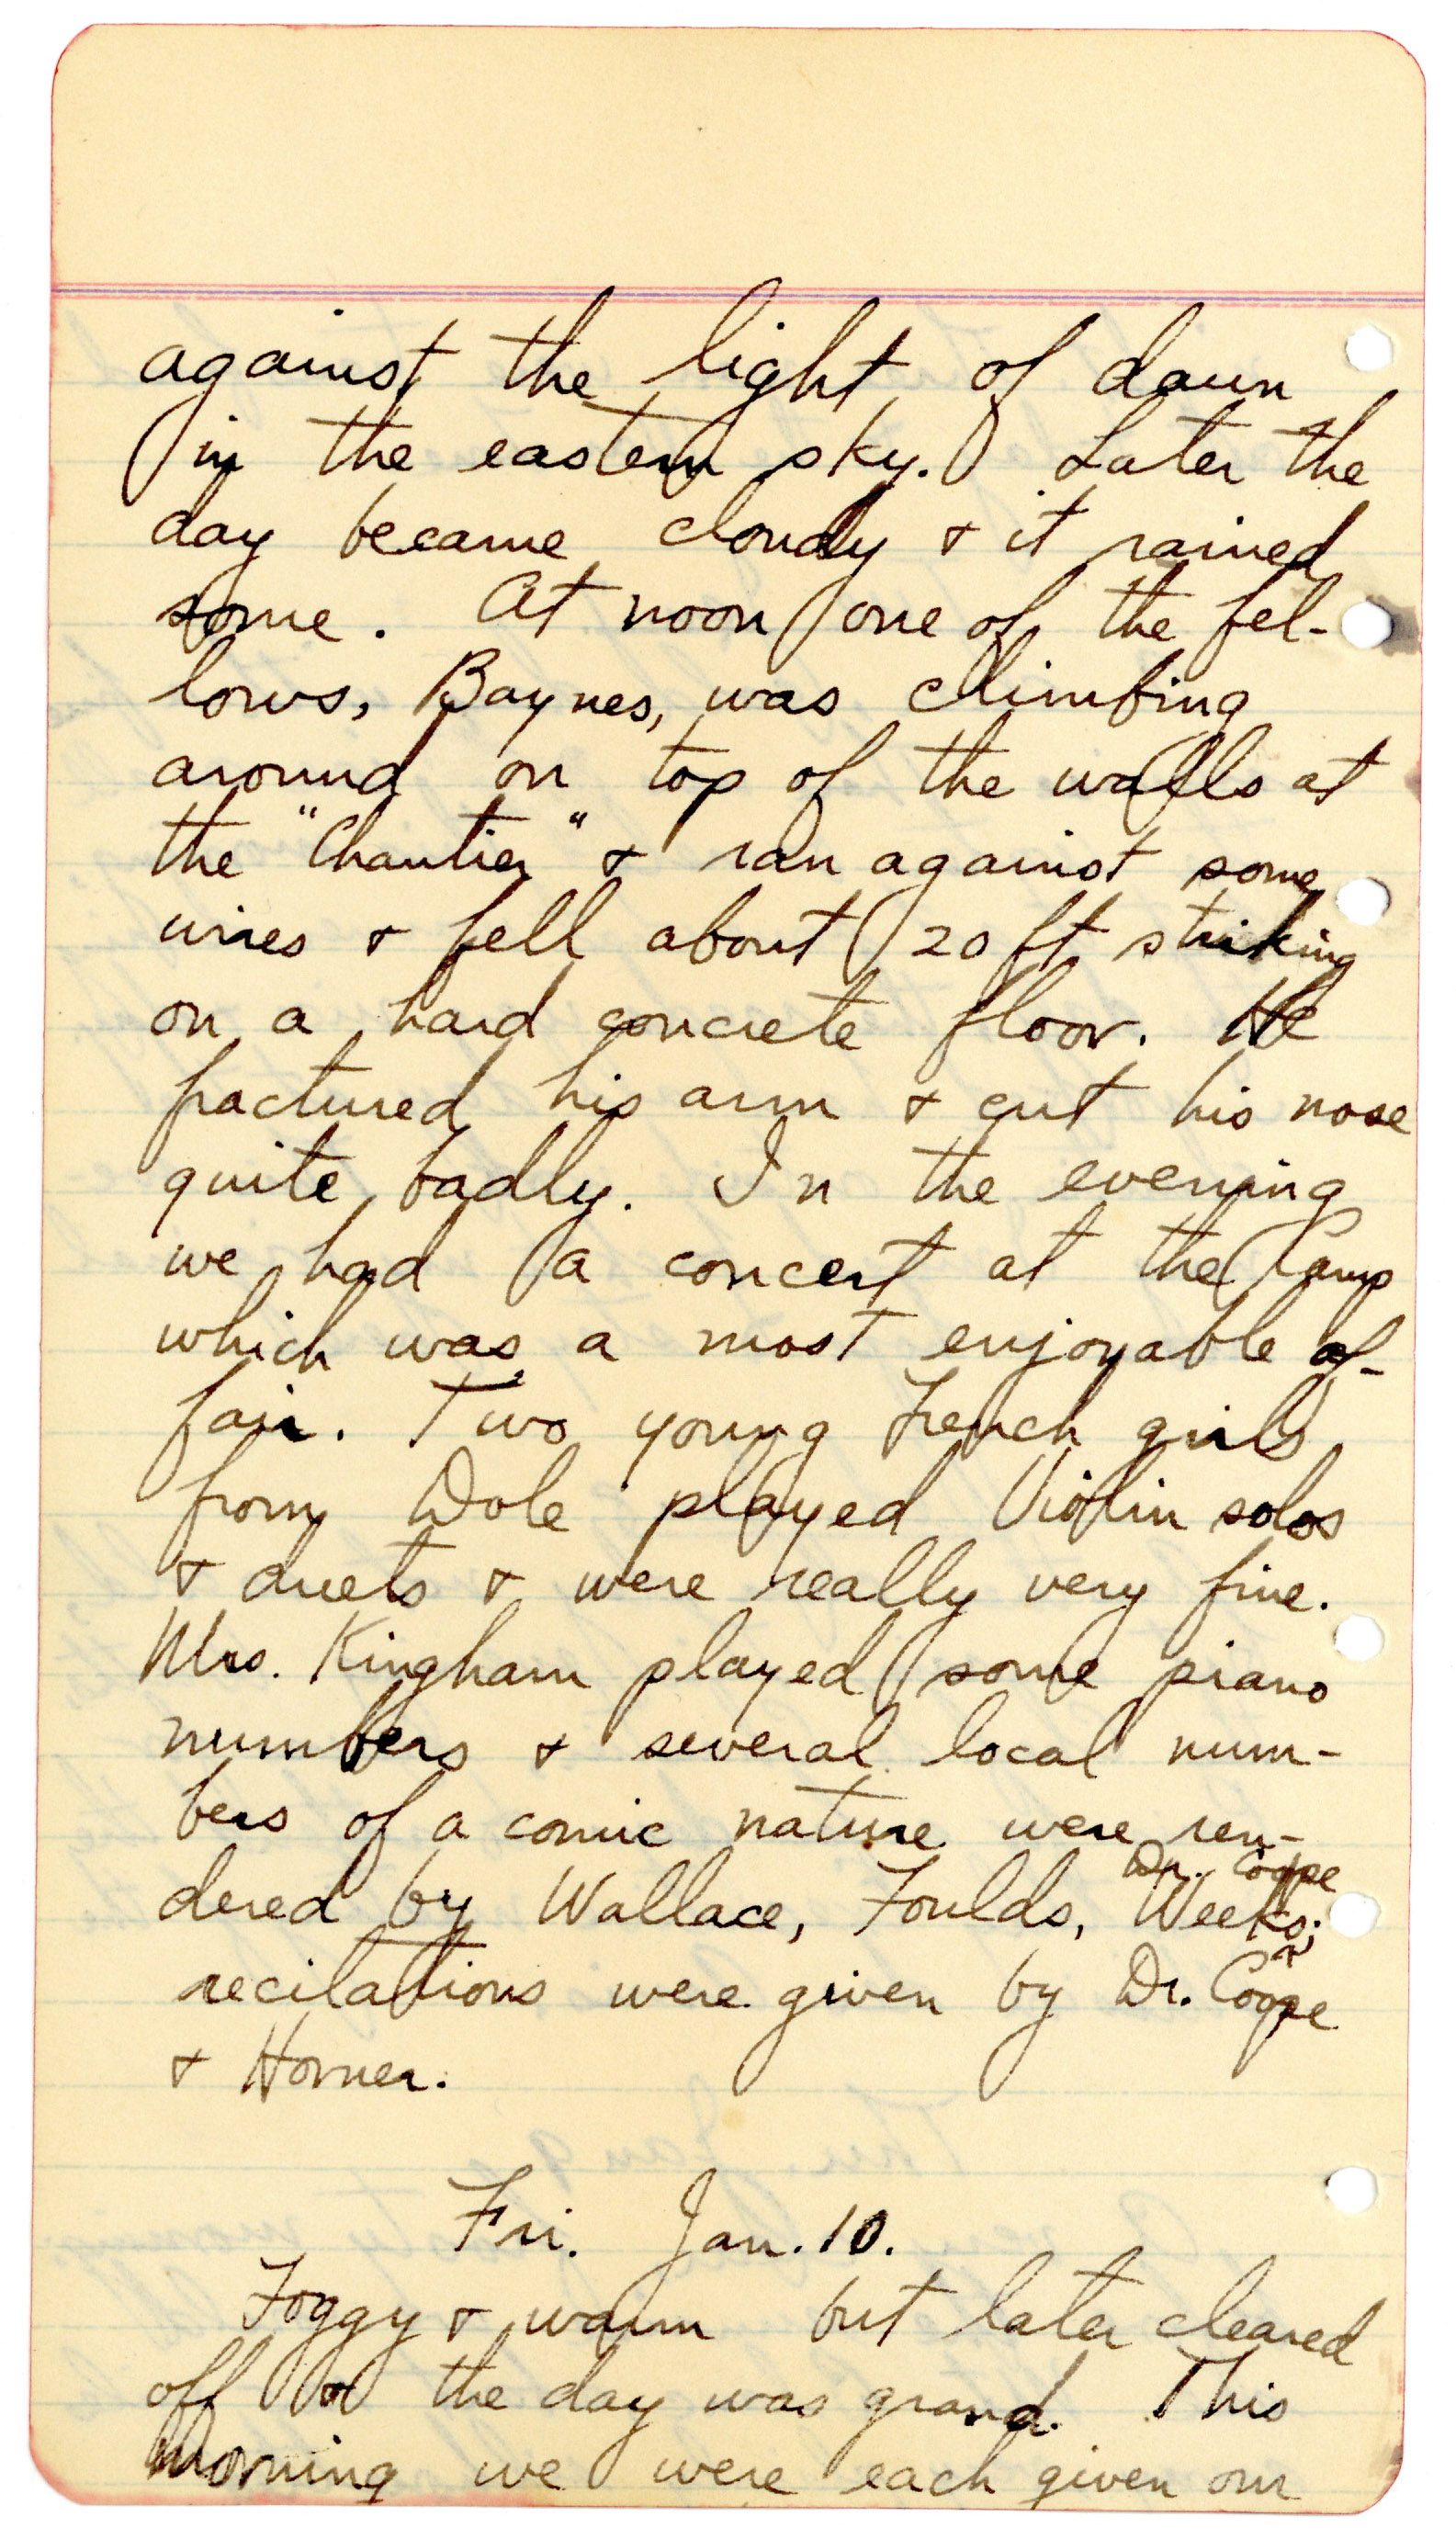 against the light of dawn
in the eastern sky. Later the
day became cloudy & it rained
some. At noon one of the fel-
lows, Baynes, was climbing
around on top of the walls at
the "Chantier" & ran against some
wires & fell about 20 ft striking
on a hard concrete floor. He
fractured his arm & cut his nose
quite badly. In the evening
we had a concert at the Camp
which was a most enjoyable af-
fair. Two young French girls
from Dole played Violin solos
& duets & were really very fine.
Mrs. Kingham played some piano
numbers & several local num-
bers of a comic nature were ren-
Dr. Coope
dered by Wallace, Foulds, Weeks;
recitations were given by Dr. Coope
& Horner.
Fri. Jan. 10.
Foggy & warm but later cleared
off & the day was grand. This
morning we were each given our